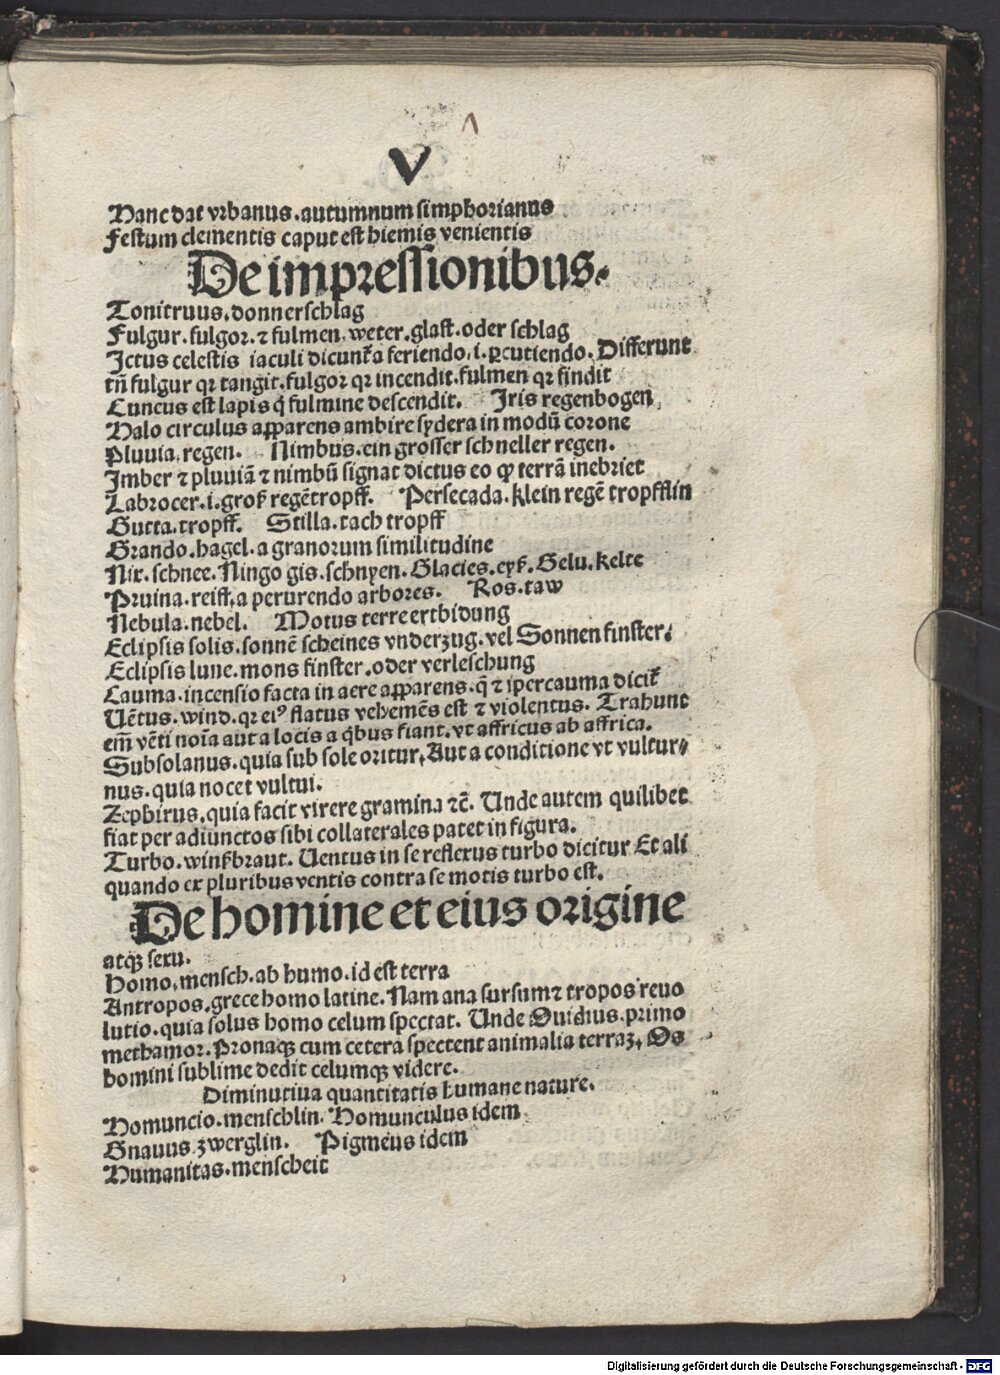 V
Hanc dat vrbanus.autumnum simphorianus
Festum clementis caput est hiemis venientis
De impressionibus.
Tonitruus.donnerschlag
Fulgur.fulgor.⁊ fulmen.weter.glast.oder schlag
Ictus celestis iaculi dicunt̄ a feriendo.i.ꝑcutiendo.Differunt
tn̄ fulgur qꝛ tangit.fulgor qꝛ incendit.fulmen qꝛ findit
Cuneus est lapis q̇ fulmine descendit. Iris regenbogen
Halo circulus apparens ambire sydera in modū corone
Pluuia.regen. Nimbus.ein grosser schneller regen.
Imber ⁊ pluuiā ⁊ nimbū signat dictus eo ꝙ terrā inebriet
Labrocer.i.groß regētropff. Persecada.klein regē tropfflin
Gutta.tropff. Stilla.tach tropff
Grando.hagel.a granorum similitudine
Nix.schnee.Ningo gis.schnyen.Glacies.eyß.Gelu.kelte
Pruina.reiff.a perurendo arbores. Ros.taw
Nebula.nebel. Motus terre ertbidung
Eclipsis solis.sonnē scheines vnderzug.vel Sonnen finster.
Eclipsis lune.mons finster.oder verleschung
Cauma.incensio facta in aere apparens.q̄ ⁊ ipercauma dicit̄
Uētus.wind.qꝛ eiꝰ flatus vehemēs est ⁊ violentus. Trahunt
em̄ vēti noīa aut a locis a q̇bus fiant.vt affricus ab affrica.
Subsolanus.quia sub sole oritur.Aut a conditione vt vultur⸗
nus.quia nocet vultui.
Zephirus.quia facit virere gramina ⁊c̄. Unde autem quilibet
fiat per adiunctos sibi collaterales patet in figura.
Turbo.winßbraut. Uentus in se reflexus turbo dicitur Et ali
quando ex pluribus ventis contra se motis turbo est.
De homine et eius origine
atqꝫ sexu.
Homo.mensch.ab humo.id est terra
Antropos.grece homo latine.Nam ana sursum ⁊ tropos reuo
lutio.quia solus homo celum spectat. Unde Ouidius.primo
methamor.Pronaqꝫ cum cetera spectent animalia terraꝫ. Os
homini sublime dedit celumqꝫ videre.
Diminutiua quantitatis humane nature.
Homuncio.menschlin. Homunculus idem
Gnauus.zwerglin. Pigmeus idem
Humanitas.menscheit
Digitalisierung gefördert durch die Deutsche Forschungsgemeinschaft - DFG